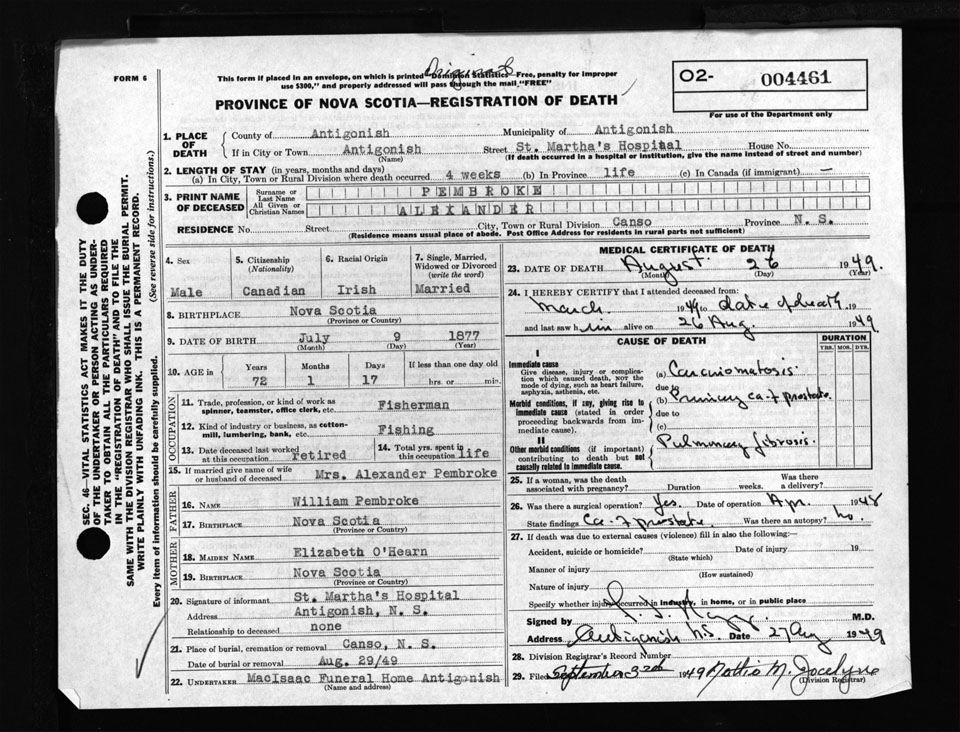 FORM 6
Original
This form if placed in an envelope, on which is printed "Dominion Statistics—Free, penalty for improper
use $300," and properly addressed will pass through the mail "FREE"
PROVINCE OF NOVA SCOTIA—REGISTRATION OF DEATH
O2- 004461
For use of the Department only
SEC. 46—VITAL STATISTICS ACT MAKES IT THE DUTY
OF THE UNDERTAKER OR PERSON ACTING AS UNDER-
TAKER TO OBTAIN ALL THE PARTICULARS REQUIRED
IN THE "REGISTRATION OF DEATH" AND TO FILE THE
SAME WITH THE DIVISION REGISTRAR WHO SHALL ISSUE THE BURIAL PERMIT.
WRITE PLAINLY WITH UNFADING INK. THIS IS A PERMANENT RECORD.
Every item of information should be carefully supplied. (See reverse side for instructions.)
1. PLACE OF DEATH
County of Antigonish Municipality of Antigonish
If in City or Town Antigonish Street St. Martha's Hospital House No.
(Name) (If death occurred in a hospital or institution, give the name instead of street and number)
2. LENGTH OF STAY (in years, months and days)
(a) In City, Town or Rural Division where death occurred 4 weeks (b) In Province life (c) In Canada (if immigrant) —
3. PRINT NAME OF DECEASED
Surname or Last Name PEMBROKE
All Given or Christian Names ALEXANDER
RESIDENCE No. Street City, Town or Rural Division Canso Province N. S.
(Residence means usual place of abode. Post Office Address for residents in rural parts not sufficient)
4. Sex 5. Citizenship (Nationality) 6. Racial Origin 7. Single, Married, Widowed or Divorced (write the word)
Male Canadian Irish Married
8. BIRTHPLACE Nova Scotia
(Province or Country)
9. DATE OF BIRTH July 9 1877
(Month) (Day) (Year)
10. AGE in Years Months Days If less than one day old
72 1 17 hrs. or min.
OCCUPATION
11. Trade, profession, or kind of work as
spinner, teamster, office clerk, etc. Fisherman
12. Kind of industry or business, as cotton-
mill, lumbering, bank, etc. Fishing
13. Date deceased last worked at this occupation retired 14. Total yrs. spent in this occupation life
15. If married give name of wife
or husband of deceased Mrs. Alexander Pembroke
FATHER
16. NAME William Pembroke
17. BIRTHPLACE Nova Scotia
(Province or Country)
MOTHER
18. MAIDEN NAME Elizabeth O'Hearn
19. BIRTHPLACE Nova Scotia
(Province or Country)
20. Signature of informant St. Martha's Hospital
Address Antigonish, N. S.
Relationship to deceased none
21. Place of burial, cremation or removal Canso, N. S.
Date of burial or removal Aug. 29/49
22. UNDERTAKER MacIsaac Funeral Home Antigonish
(Name and address)
MEDICAL CERTIFICATE OF DEATH
23. DATE OF DEATH August 26 1949.
(Month) (Day) (Year)
24. I HEREBY CERTIFY that I attended deceased from:
March 1949 to date of death 19
and last saw him alive on 26 Aug. 1949
CAUSE OF DEATH DURATION
YRS. MOS. DYS.
I
Immediate cause
Give disease, injury or complica-
tion which caused death, NOT the
mode of dying, such as heart failure,
asphyxia, asthenia, etc.
(a) Carcinomatosis.
due to
Morbid conditions, if any, giving rise to
immediate cause (stated in order
proceeding backwards from im-
mediate cause).
(b) Primary ca. of prostate.
due to
(c)
II
Other morbid conditions (if important)
contributing to death but not
causally related to immediate cause.
Pulmonary fibrosis.
25. If a woman, was the death
associated with pregnancy? Duration weeks. Was there a delivery?
26. Was there a surgical operation? Yes. Date of operation Apr. 1948
State findings Ca. of prostate. Was there an autopsy? no.
27. If death was due to external causes (violence) fill in also the following:—
Accident, suicide or homicide? Date of injury 19
(State which)
Manner of injury
(How sustained)
Nature of injury
Specify whether injury occurred in industry, in home, or in public place
Signed by M.D.
Address Antigonish N.S. Date 27 Aug 1949
28. Division Registrar's Record Number
29. Filed September 3rd 1949 M. Jocelyne
(Division Registrar)